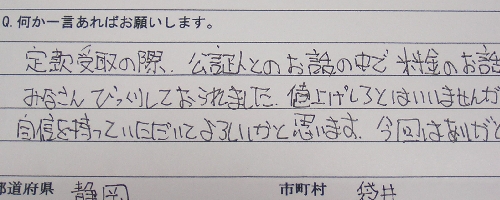 Q.何か一言あればお願いします。
定款受取の際、公証人とのお話の中で料金のお話
みなさんびっくりしておられました。値上げしろとはいいませんが
自信を持っていただいてよろしいかと思います。今回はありがと
都道府県 静岡 市町村 袋井